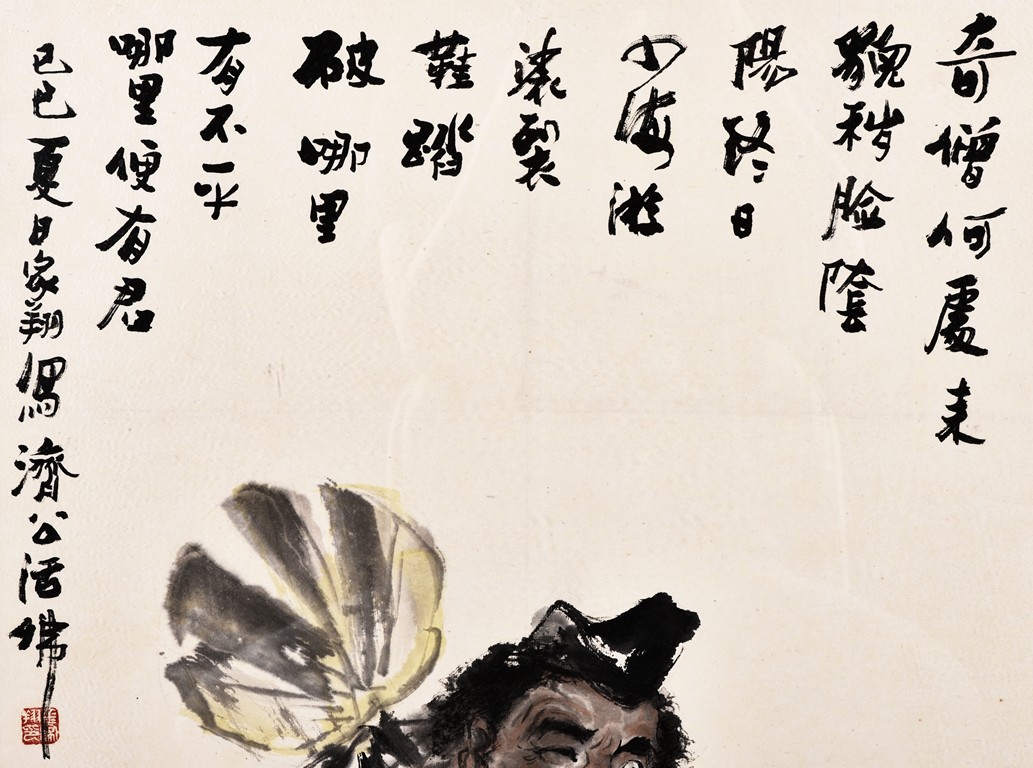 奇僧何處来
貌秽脸隂
陽终日
四海游
裟裂
鞋踏
破哪里
有不平
哪里便有君
己巳夏日家翔寫濟公活佛